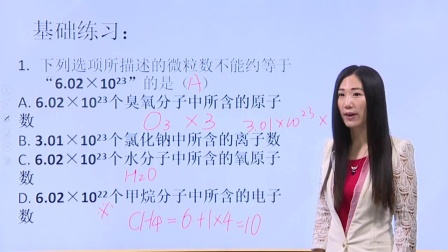 基础练习：
1. 下列选项所描述的微粒数不能约等于
“6.02×10²³”的是（A）
A. 6.02×10²³个臭氧分子中所含的原子
数
O₃ ×3 3.01×10²³×
B. 3.01×10²³个氯化钠中所含的离子数
C. 6.02×10²³个水分子中所含的氧原子
数
H₂O
D. 6.02×10²²个甲烷分子中所含的电子
数
CH₄=6+1×4=10